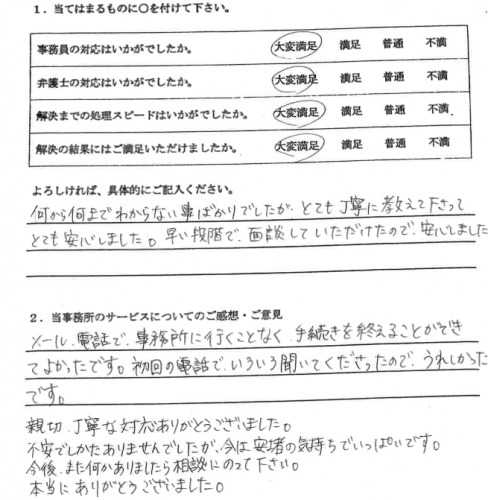 1．当てはまるものに○を付けて下さい。
事務員の対応はいかがでしたか。 大変満足 満足 普通 不満
弁護士の対応はいかがでしたか。 大変満足 満足 普通 不満
解決までの処理スピードはいかがでしたか。 大変満足 満足 普通 不満
解決の結果にはご満足いただけましたか。 大変満足 満足 普通 不満
よろしければ、具体的にご記入ください。
何から何までわからない事ばかりでしたが、とても丁寧に教えて下さって
とても安心しました。早い段階で、面談していただけたので、安心しました
2．当事務所のサービスについてのご感想・ご意見
メール、電話で、事務所に行くことなく、手続きを終えることができ
てよかったです。初回の電話で、いろいろ聞いてくださったので、うれしかった
です。
親切、丁寧な対応ありがとうございました。
不安でしかたありませんでしたが、今は安堵の気持ちでいっぱいです。
今後、また何かありましたら相談にのって下さい。
本当にありがとうございました。